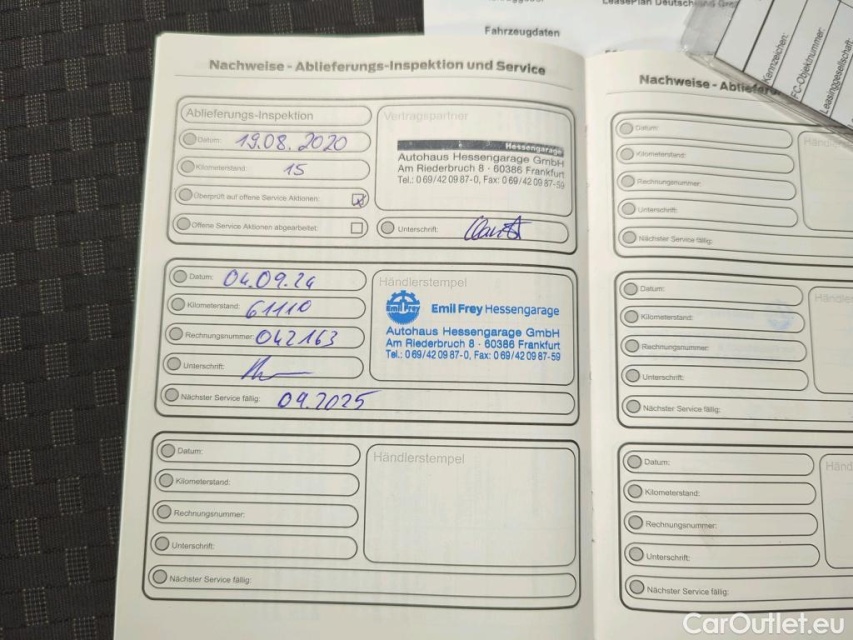 LeasePlan Deutschland
Fahrzeugdaten
Kennzeichen:
FC-Objektnummer:
Leasinggesellschaft
Nachweise - Ablieferungs-Inspektion und Service
Ablieferungs-Inspektion
Datum: 19.08.2020
Kilometerstand: 15
Überprüft auf offene Service Aktionen: x
Offene Service Aktionen abgearbeitet:
Vertragspartner
Hessengarage
Autohaus Hessengarage GmbH
Am Riederbruch 8 · 60386 Frankfurt
Tel.: 0 69/42 09 87-0, Fax: 0 69/42 09 87-59
Unterschrift:
Datum: 04.09.24
Kilometerstand: 61110
Rechnungsnummer: 042163
Unterschrift:
Nächster Service fällig: 09.2025
Händlerstempel
Emil Frey
Emil Frey Hessengarage
Autohaus Hessengarage GmbH
Am Riederbruch 8 · 60386 Frankfurt
Tel.: 0 69/42 09 87-0, Fax: 0 69/42 09 87-59
Datum:
Kilometerstand:
Rechnungsnummer:
Unterschrift:
Nächster Service fällig:
Händlerstempel
Nachweise - Ablieferu
Datum:
Kilometerstand:
Rechnungsnummer:
Unterschrift:
Nächster Service fällig:
Hän
Datum:
Kilometerstand:
Rechnungsnummer:
Unterschrift:
Nächster Service fällig:
Händler
Datum:
Kilometerstand:
Rechnungsnummer:
Unterschrift:
Nächster Service fällig:
Händ
CarOutlet.eu